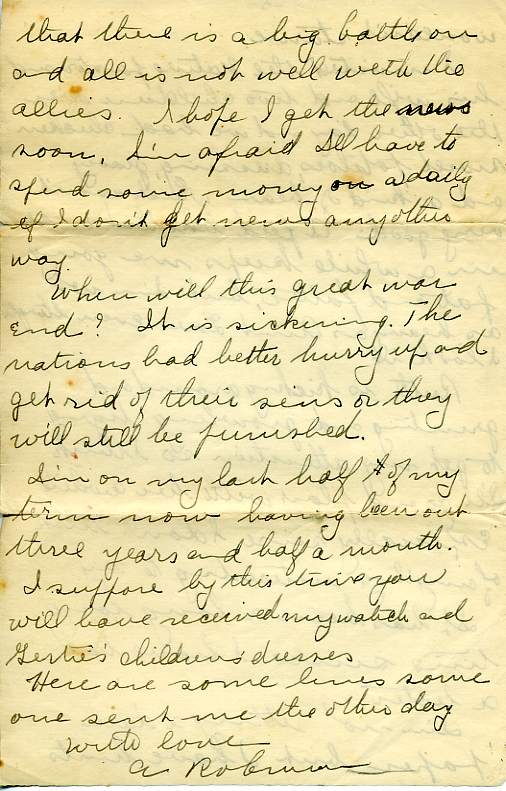 that there is a big battle on
and all is not well with the
allies. I hope I get the news
soon, I'm afraid I'll have to
spend some money on a daily
if I don't get news any other
way.
When will this great war
end? It is sickening. The
nations had better hurry up and
get rid of their sins or they
will still be punished.
I'm on my last half of my
term now having been out
three years and half a month.
I suppose by this time you
will have received my watch and
Gertie's children's dresses
Here are some lines some
one sent me the other day
with love
a